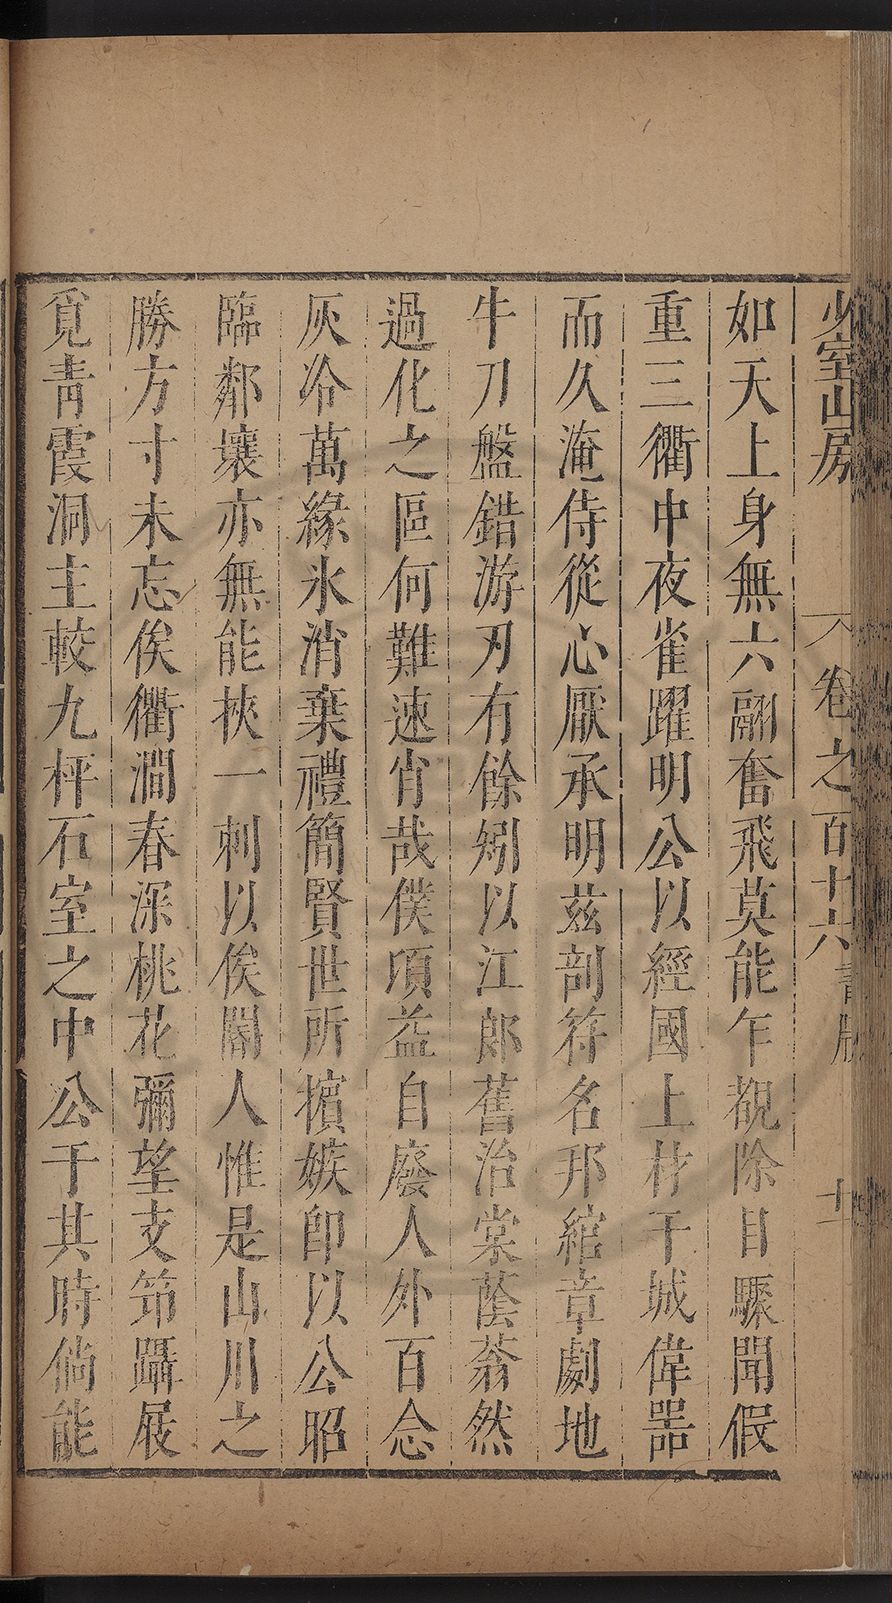 少室山房 卷之百十六 書牘 十
如天上身無六翮奮飛莫能乍覩除目驟聞假
重三衢中夜雀躍明公以經國上材干城偉噐
而久淹侍從心厭承明茲剖符名邦綰章劇地
牛刀盤錯游刃有餘矧以江郎舊治棠蔭蓊然
過化之區何難速肖哉僕項益自廢人外百念
灰冷萬緣氷消棄禮簡賢世所擯嫉卽以公昭
臨鄰壤亦無能挾一刺以俟閽人惟是山川之
勝方寸未忘俟衢澗春深桃花彌望支笻躡屐
覓靑霞洞主較九枰石室之中公于其時倘能